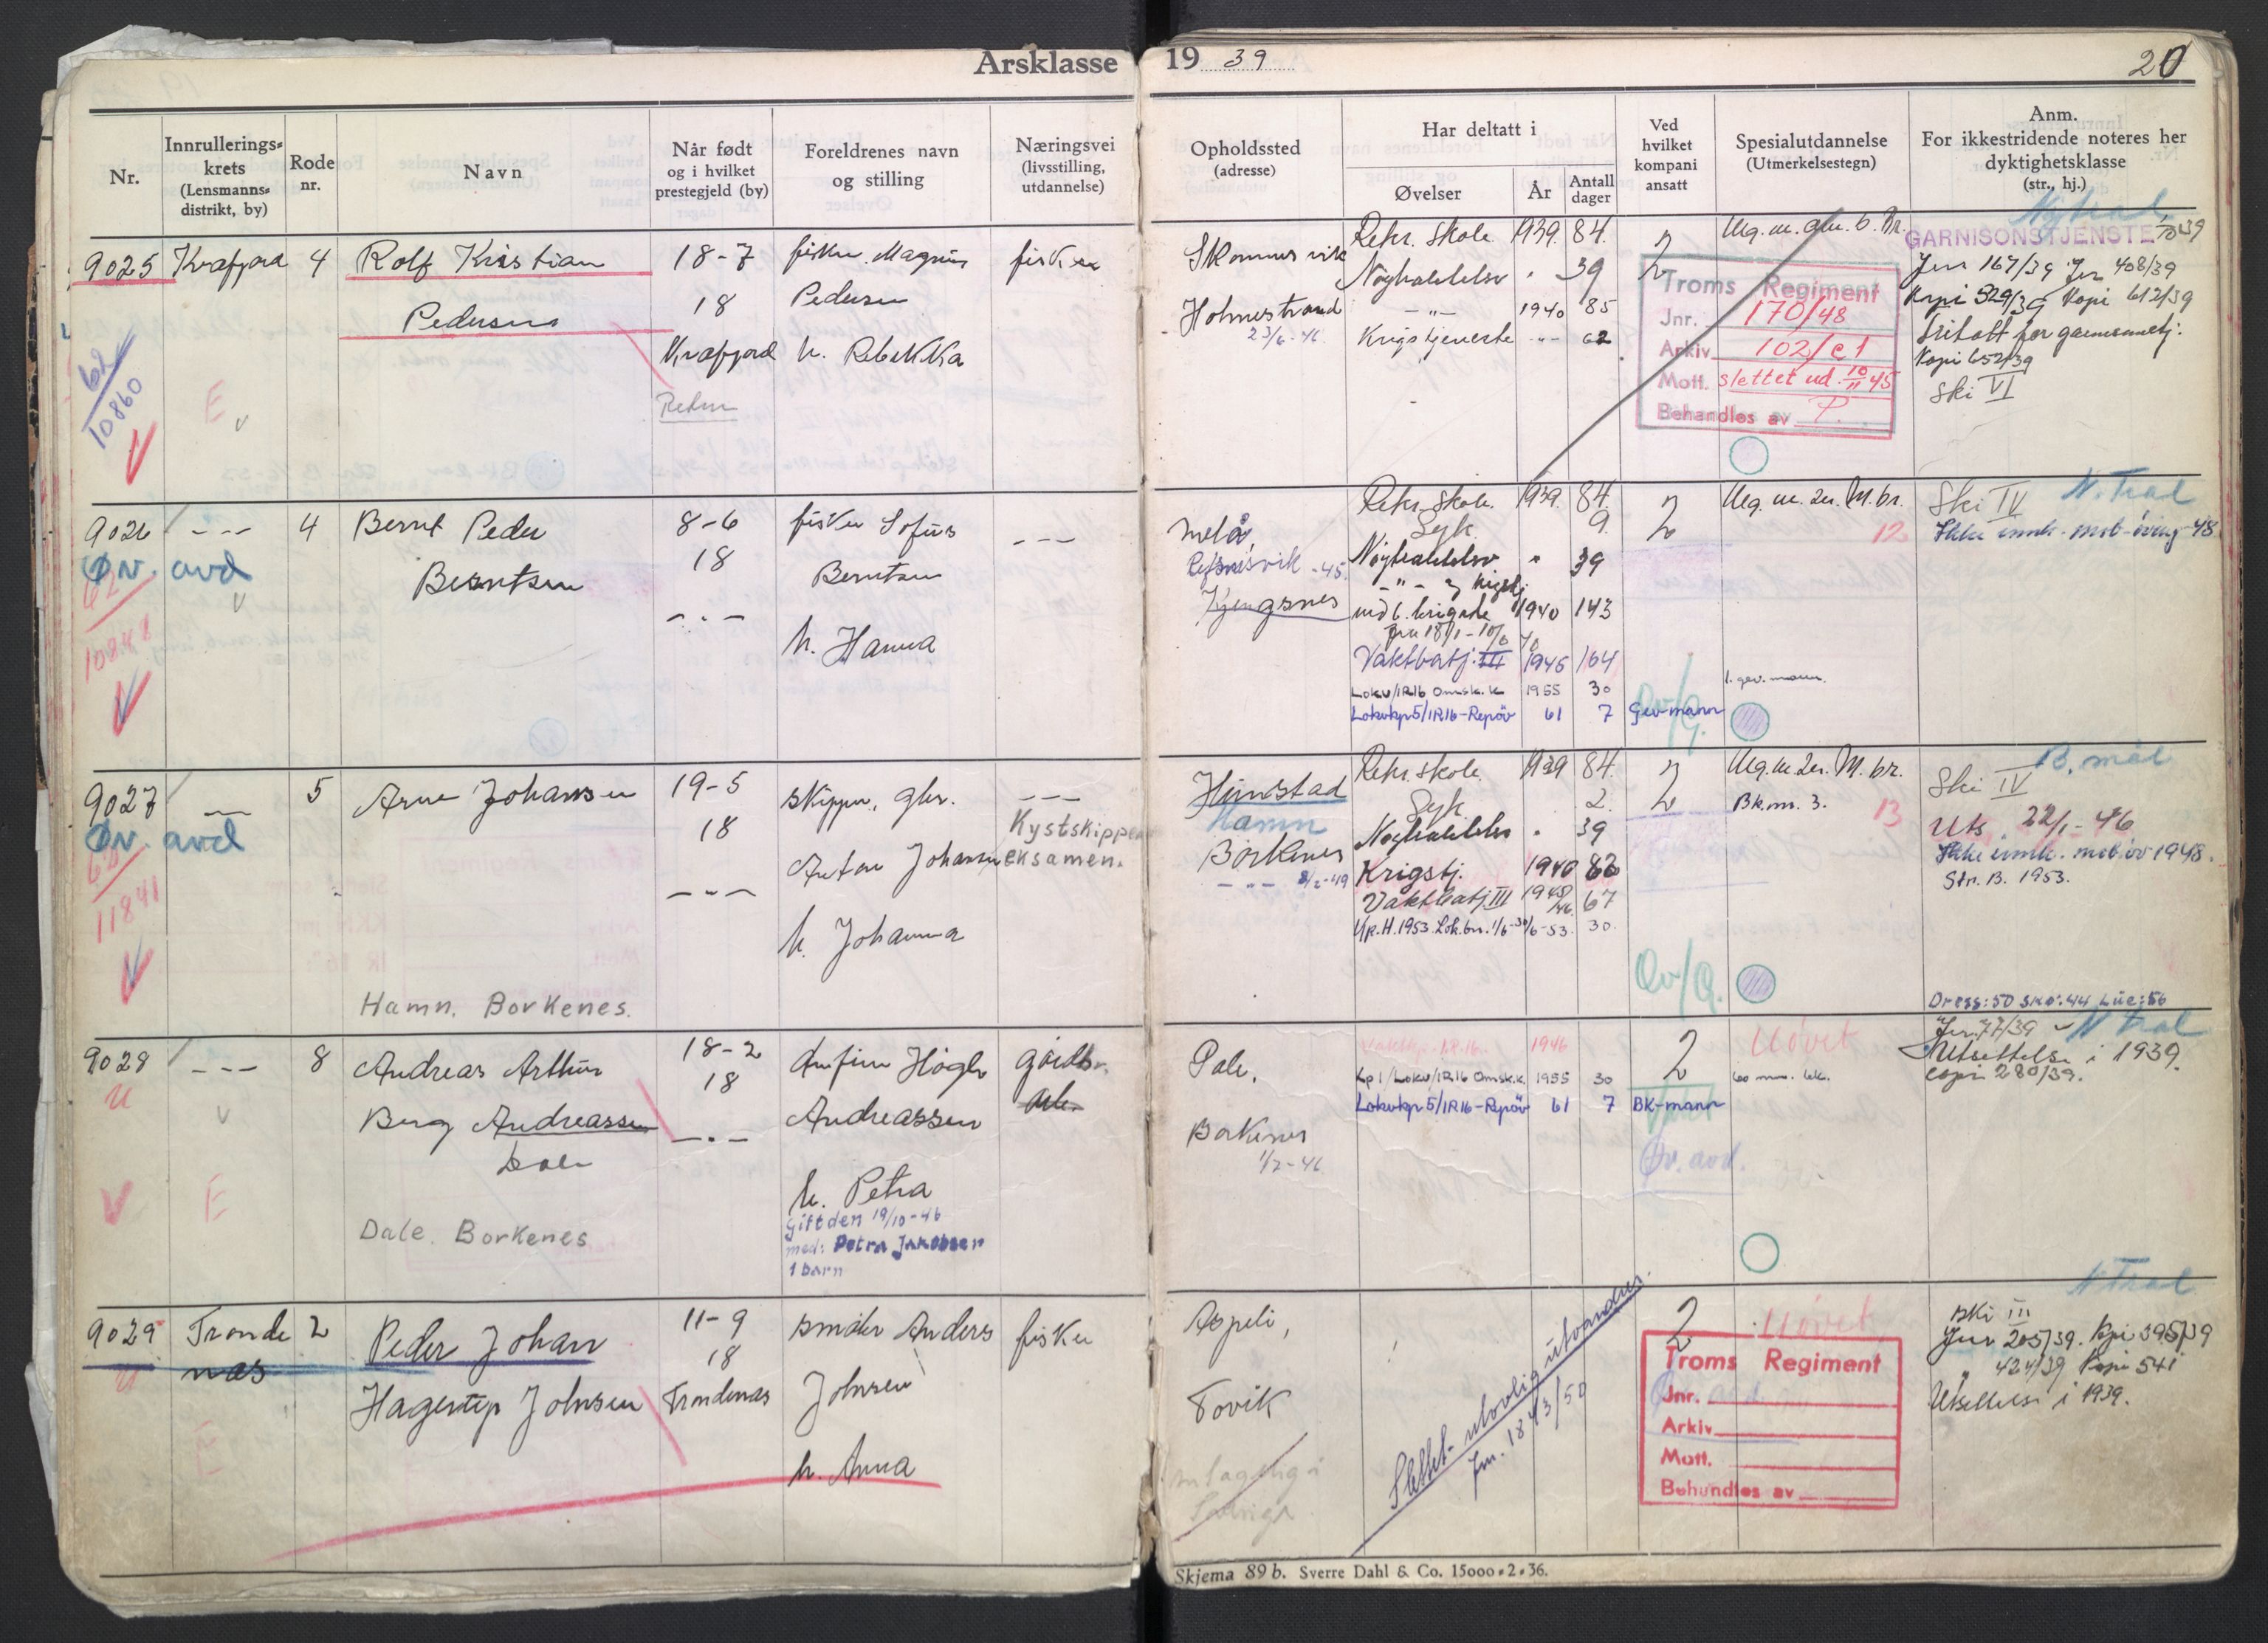 Årsklasse 19 39
20
Nr.
Innrullerings-
krets
(Lensmanns-
distrikt, by)
Rode
nr.
Navn
Når født
og i hvilket
prestegjeld (by)
Foreldrenes navn
og stilling
Næringsvei
(livsstilling,
utdannelse)
Opholdssted
(adresse)
Har deltatt i
Øvelser
År
Antall
dager
Ved
hvilket
kompani
ansatt
Spesialutdannelse
(Utmerkelsestegn)
Anm.
For ikkestridende noteres her
dyktighetsklasse
(str., hj.)
9025 Kvæfjord 4 Rolf Kristian
Pedersen
18-7
18
Kvæfjord
fisker Magnus
Pedersen
h. Rebekka
fisker
62
10860
E
Holmestrand
23/6-46
Rekr. skole 1939 84
39
-"- 1940 85
Krigstjeneste -"- 62
2
2
GARNISONSTJENESTE
Jnr 167/39 Jnr 408/39
Kopi 329/39 Kopi 612/39
Kopi 652/39
Ski VI
Troms Regiment
Jnr. 170/48
Arkiv 102/e1
Mott. slettet ud. 10/11 45
Behandles av P.
9026 --- 4 Bernt Peder
Berntsen
Øv. avd
62
10848
8-6
18
-"-
fisker Sofus
Berntsen
h. Hanna
---
Melå,
Refsnesvik -45.
Kjengsnes
Rekr. skole 1939 84
Syk 9
39
med 6. brigade 1940 143
Vaktbatj. III 1945 164
Lokv/IR16 Omsk. k 1955 30
Lokvkp5/IR16-Repöv 61 7
2
2
Gev-mann
1. gev. mann.
12
Ski IV N. Tral
Ikke innk. mob-øving 48
9027 --- 5 Arne Johansen
Øv. avd
62
11841
Hamn. Borkenes.
19-5
18
-"-
skipper, gbr.
Anton Johansen
h. Johanna
---
Kystskipper
eksamen.
Hunstad
Hamn
Borkenes
-"- 8/2-49
Rekr. skole 1939 84
Syk 2
39
Krigstj. 1940 82
Vaktbatj III 1945/46 67
1953 Lok.bn. 1/6-30/6-53. 30
2
2
Øv/Q.
Bk.m. 3.
13
Ski IV B. mål
Uts. 22/1-46
Ikke innk. mob. öv 1948.
Str. B. 1953.
Dress: 50 sko: 44 Lue: 56
9028 --- 8 Andreas Arthur
Berg Andreassen
Dale
U
E
Dale. Borkenes
18-2
18
-"-
Anfinn Högli
Andreassen
h. Petra
Gift den 19/10-46
med: Petra Jakobsen
1 barn
gårdbr.
Dale,
Borkenes
1/7-46
1946
Kp 1/Lokv/IR16 Omsk.k. 1955 30
Lokvkp5/IR16-Repöv 61 7
2
BK-mann
Øv. avd.
Uövet
60 mm. bk.
Jnr. 77/39 N Tral
Utsettelse i 1939.
Kopi 280/39.
9029 Tronde
nes
2 Peder Johan
Hagerup Johnsen
U
E
11-9
18
Trondenes
småbr Anders
Johnsen
h. Anna
fisker
Aspeli,
Tovik
Slettet- ulovlig utvandret.
Jnr. 1843/50
2
Uövet
Troms Regiment
Jnr.
Arkiv
Mott.
Behandles av
N Tral
Ski III
Jnr 205/39. Kopi 395/39
424/39 Kopi 541
Utsettelse i 1939.
Skjema 89 b. Sverre Dahl & Co. 15000-2-36.